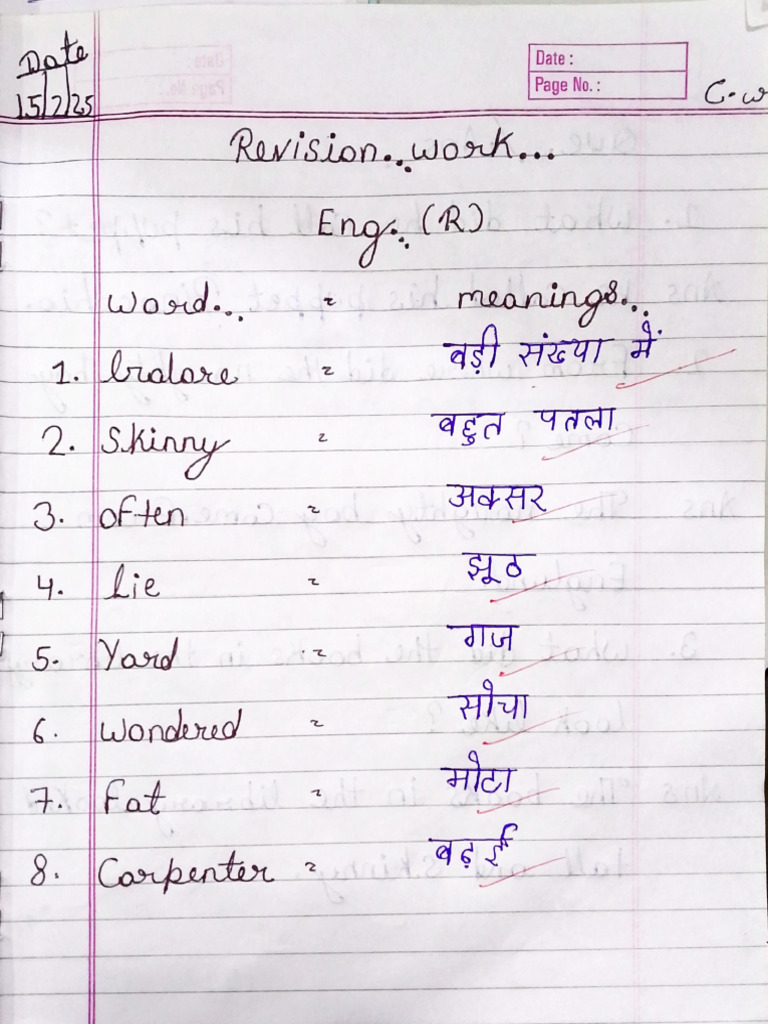 Date
15/2/25
Date :
Page No. :
C.w
Revision work...
Eng. (R)
Word... = meanings...
1. Galore = बड़ी संख्या में
2. Skinny = बहुत पतला
3. often = अक्सर
4. Lie = झूठ
5. Yard = गज
6. Wondered = सोचा
7. Fat = मोटा
8. Carpenter = बढ़ई